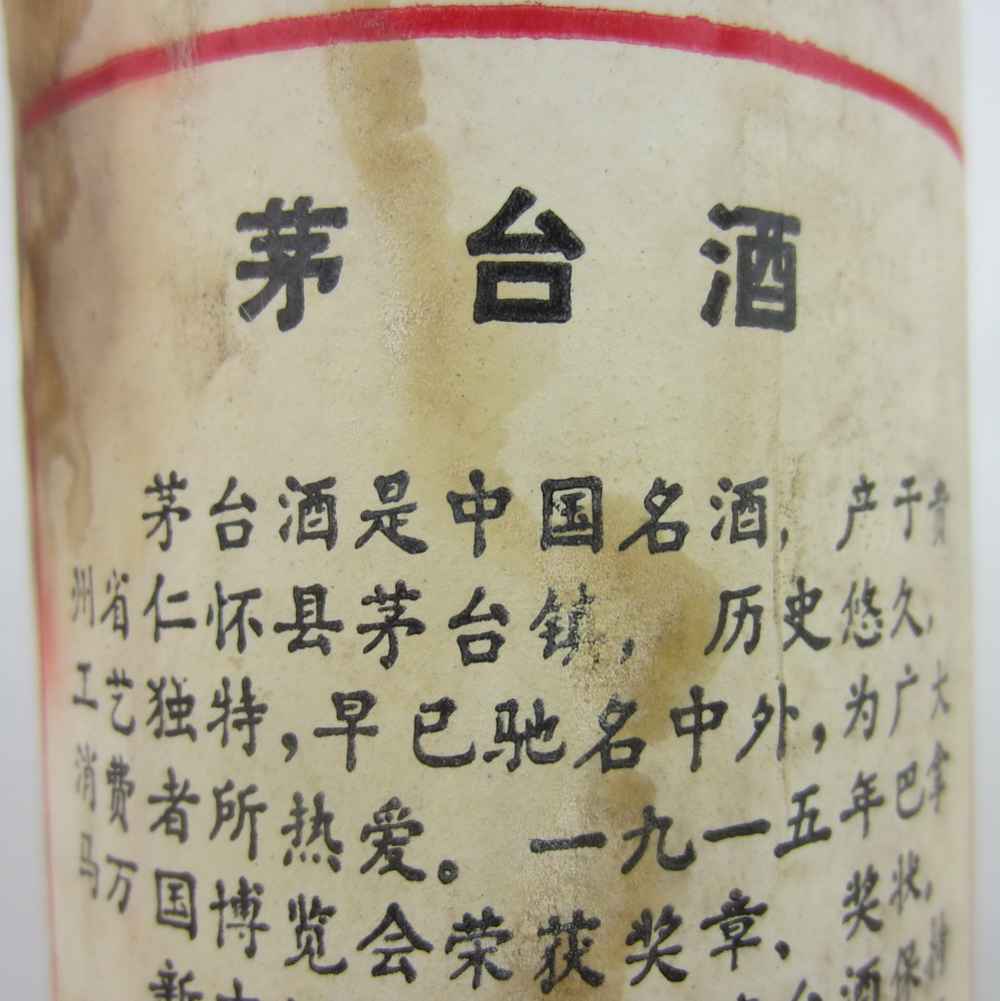 茅台酒
茅台酒是中国名酒，产于贵
州省仁怀县茅台镇，历史悠久，
工艺独特，早已驰名中外，为广大
消费者所热爱。一九一五年巴拿
马万国博览会荣获奖章、奖状，